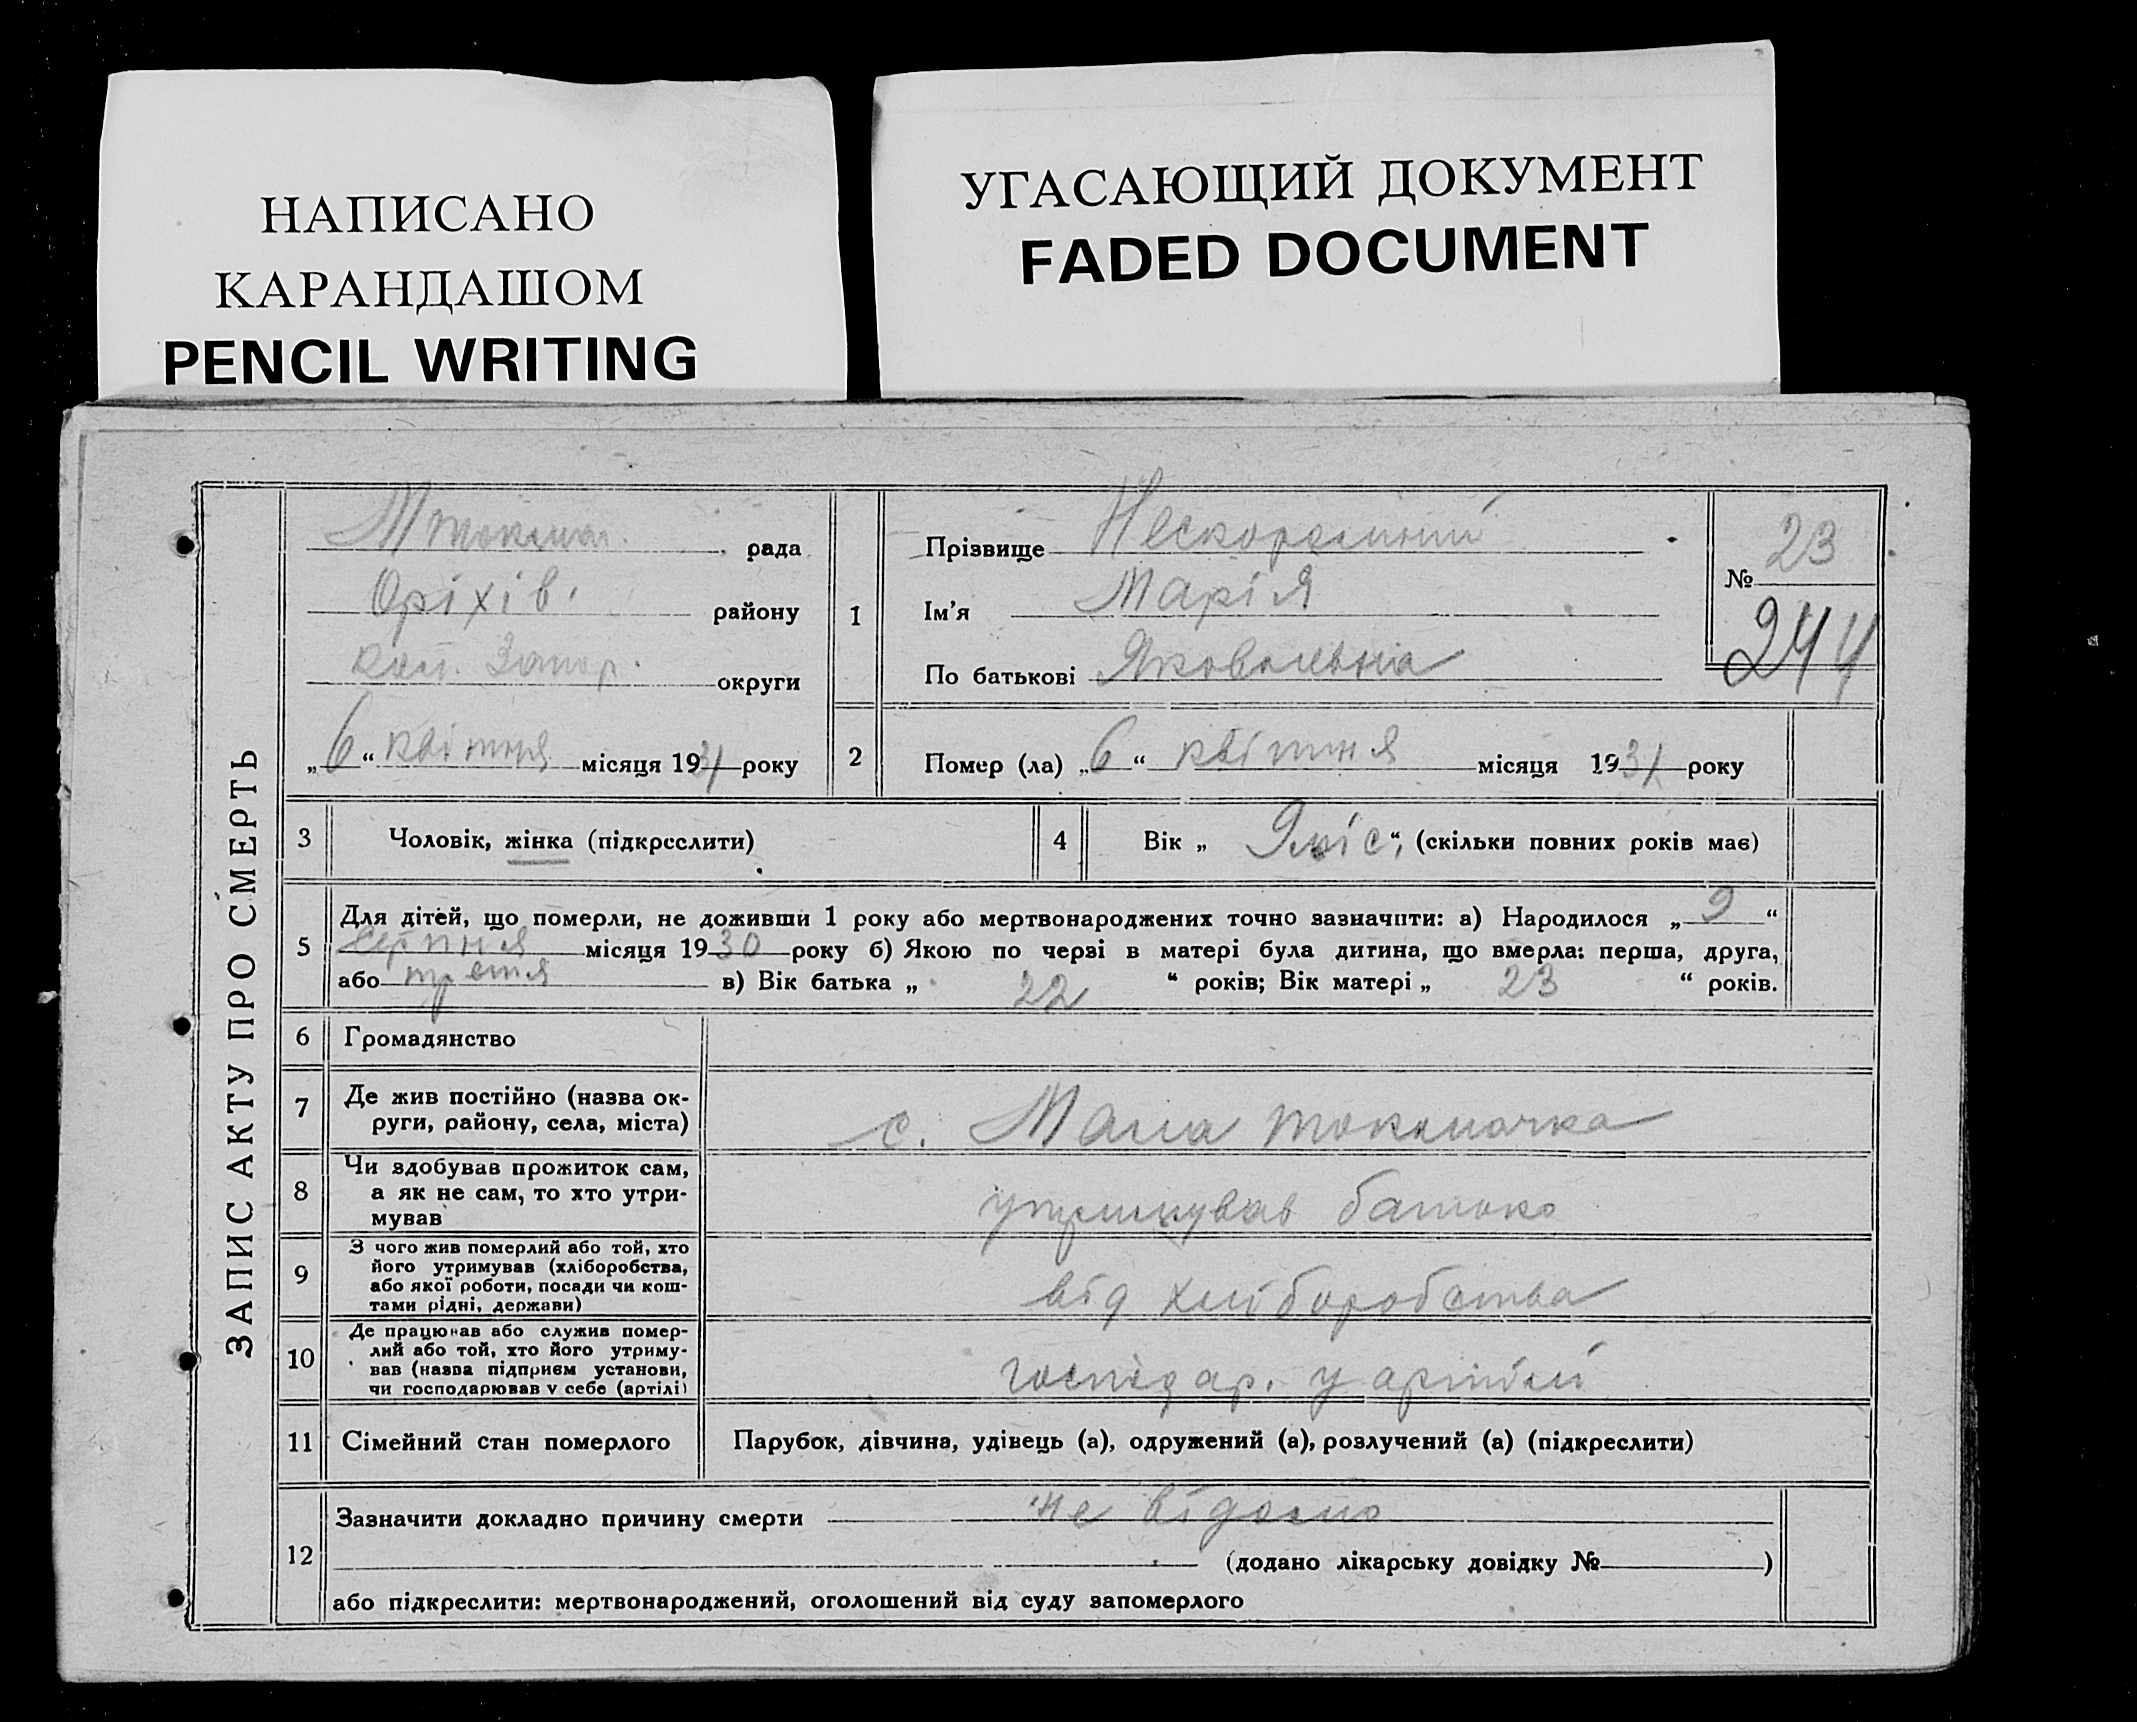 НАПИСАНО
КАРАНДАШОМ
PENCIL WRITING
УГАСАЮЩИЙ ДОКУМЕНТ
FADED DOCUMENT
ЗАПИС АКТУ ПРО СМЕРТЬ
М токмач. рада
Оріхів. району
Запор. округи
„6“ квітня місяця 1931 року
1
Прізвище
Ім'я Марія
По батькові Яковлевна
№ 23
244
2 Помер (ла) „6“ квітня місяця 1931 року
3 Чоловік, жінка (підкреслити)
4 Вік „ 9 міс“, (скільки повних років має)
5 Для дітей, що померли, не доживши 1 року або мертвонароджених точно зазначити: а) Народилося „9“
серпня місяця 1930 року б) Якою по черзі в матері була дитина, що вмерла: перша, друга,
або третя в) Вік батька „ 22 “ років; Вік матері „ 23 “ років.
6 Громадянство
7 Де жив постійно (назва ок-
руги, району, села, міста)
с. Мала токмачка
8 Чи здобував прожиток сам,
а як не сам, то хто утри-
мував
утримував батько
9 З чого жив померлий або той, хто
його утримував (хліборобства,
або якої роботи, посади чи кош-
тами рідні, держави)
від хліборобства
10 Де працював або служив помер-
лий або той, хто його утриму-
вав (назва підприєм установи,
чи господарював у себе (артілі)
господар. у артілі
11 Сімейний стан померлого
Парубок, дівчина, удівець (а), одружений (а), розлучений (а) (підкреслити)
12 Зазначити докладно причину смерти не відомо
(додано лікарську довідку № )
або підкреслити: мертвонароджений, оголошений від суду запомерлого